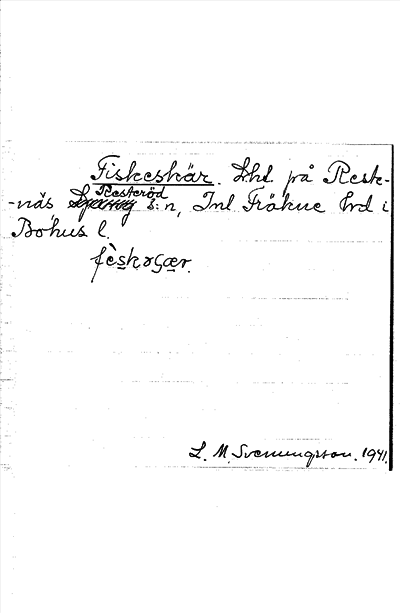 Fiskeskär. Lhl. på Reste-
-näs Resteröd s:n, Inl Fräkne hrd i
Bohus l.
fèskəʂær.
L. M. Svenungsson. 1941.